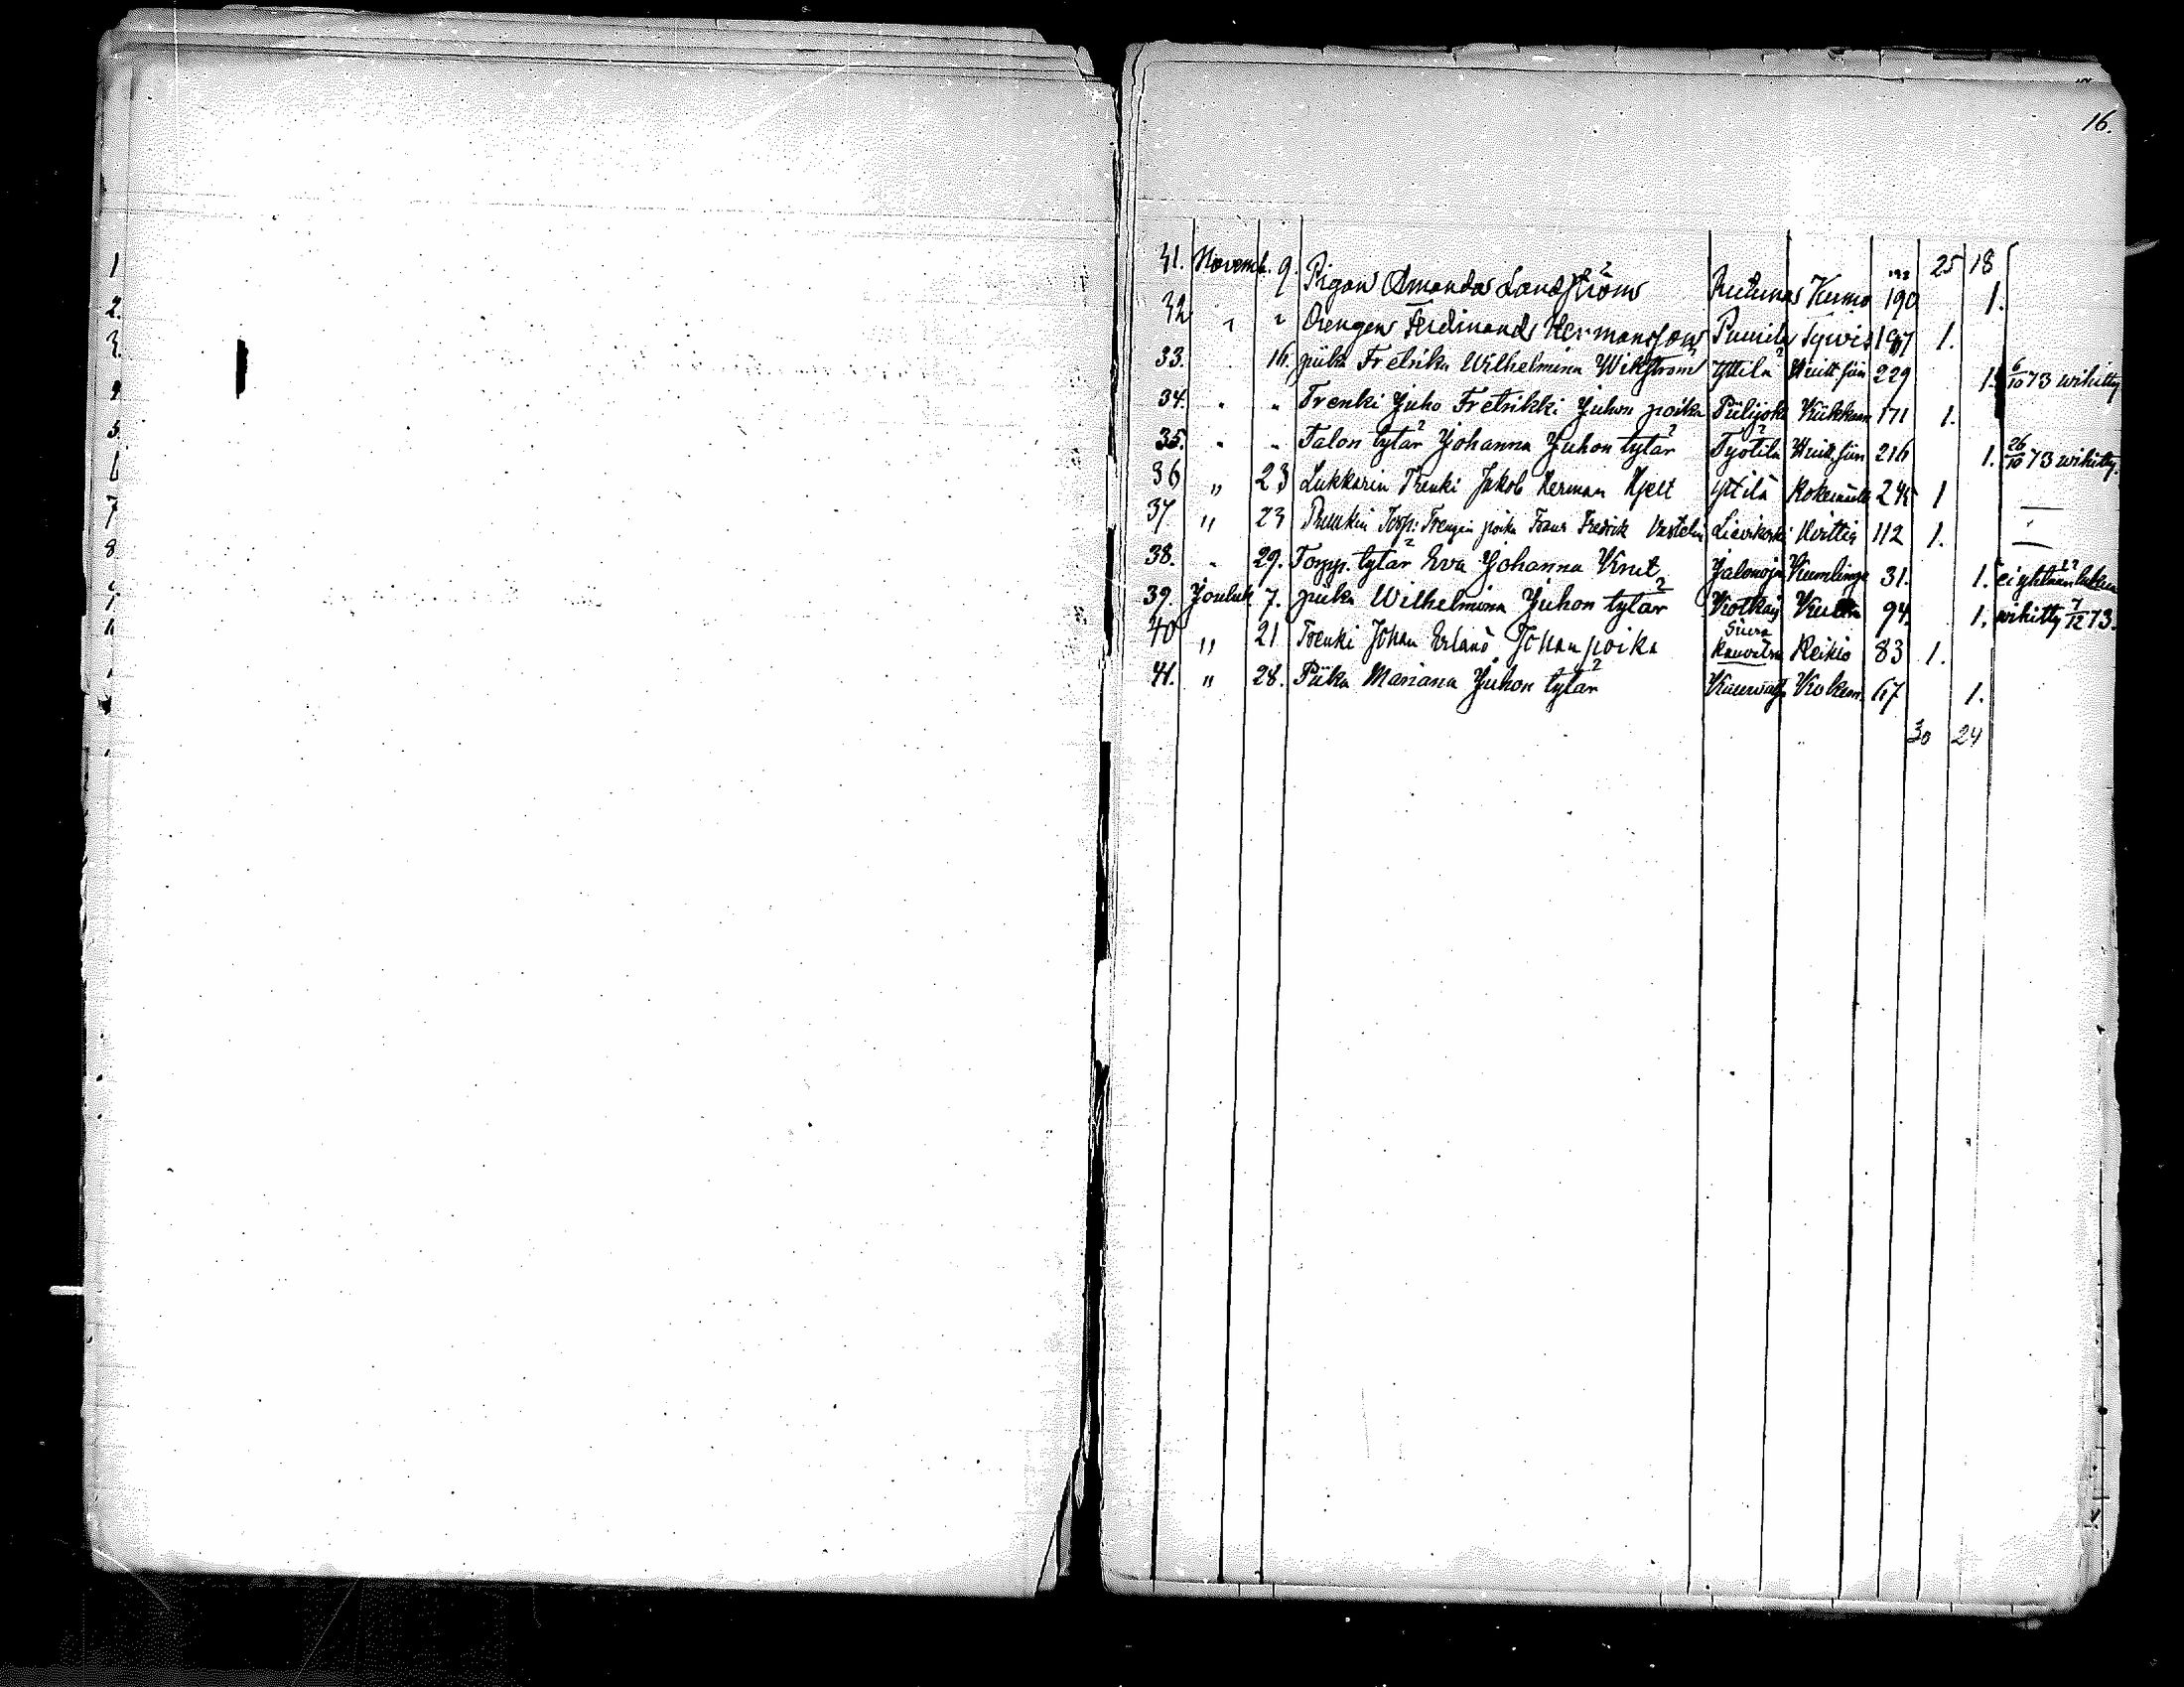 16.
1
2.
3.
4
5.
6
7
8
25 18
31. Novemb. 9. Pigan Amanda Landström Kumo 190 1.
32 " " Drengen Ferdinand Hermansson Punila Tyrvis 197 1.
33. 16. piika Fretrika Wilhelmina Wikström Yttilä Huitt.siin 229 1. 6/10 73 wihitty
34. " " Trenki Juho Fretrikki Juhon poika Piilijoki Kiikkaan 171 1.
35. " " Talon tytär Johanna Juhon tytär Työtila Huitt.siin 216 1. 26/10 73 wihitty.
36 " 23 Lukkarin Trenki Jakob Herman Hjelt Yttilä Kokemäelle 245 1 —
37 " 23 Trengin poika Frans Fredrik Lievikoski Hvittis 112 1. —
38. " 29. Torpp. tytär Eva Johanna Knut Jalonoja Kumlinge 31. 1.
39. Jouluk. 7. piika Wilhelmina Juhon tytär 94. 1. wihitty 7/12 73.
40 " 21 Trenki Johan Erland Johan poika Suera Kauvatsa Keikiö 83 1.
41. " 28. Piika Mariana Juhon tytär Kokem. 67 1.
30 24